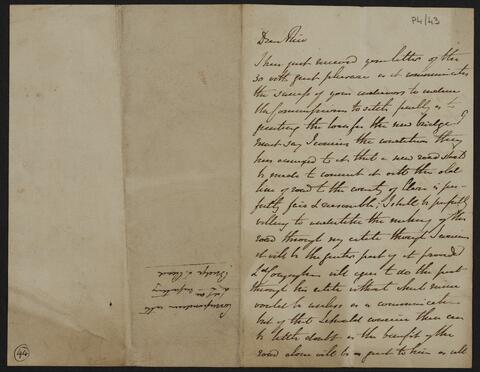 P4/43
Dear Rice
I have just received your letter of the
30 with great pleasure as it communicates
the success of your endeavors to induce
the Commissioners to as to
granting the loan for the new bridge. I
must say I conceive the condition they
have annexed to it that a new road should
be made to connect it with the old
line of road to the county of Clare is per-
fectly fair & reasonable, I shall be perfectly
willing to undertake the making of this
road through my estate though I conceive
it will be the greater part of it provided
Ld will agree to do the part
through his estate without which mine
would be useless as a communication
but of that I should conceive there can
be little doubt as the benefit of the
road alone will be as great to him as all
Correspondence with
as to
Bridge &
44